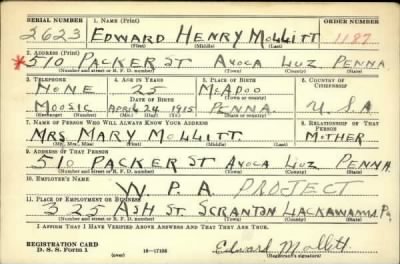 SERIAL NUMBER 1. NAME (Print) ORDER NUMBER
2623 EDWARD HENRY MOLLITT 1187
(First) (Middle) (Last)
2. ADDRESS (Print)
*510 PACKER ST AVOCA LUZ PENNA
(Number and street or R. F. D. number) (Town) (County) (State)
3. TELEPHONE 4. AGE IN YEARS 5. PLACE OF BIRTH 6. COUNTRY OF CITIZENSHIP
NONE 25 MCADOO
DATE OF BIRTH (Town or county)
MOOSIC APRIL 24 1915 PENNA U.S.A
(Exchange) (Number) (Mo.) (Day) (Yr.) (State or country)
7. NAME OF PERSON WHO WILL ALWAYS KNOW YOUR ADDRESS 8. RELATIONSHIP OF THAT PERSON
MRS. MARY MOLLITT MOTHER
(Mr., Mrs., Miss) (First) (Middle) (Last)
9. ADDRESS OF THAT PERSON
510 PACKER ST AVOCA LUZ PENNA
(Number and street or R. F. D. number) (Town) (County) (State)
10. EMPLOYER'S NAME
W.P.A. PROJECT
11. PLACE OF EMPLOYMENT OR BUSINESS
325 ASH ST. SCRANTON LACKAWANNA PA
(Number and street or R. F. D. number) (Town) (County) (State)
I AFFIRM THAT I HAVE VERIFIED ABOVE ANSWERS AND THAT THEY ARE TRUE.
REGISTRATION CARD
D. S. S. Form 1 (over) 16—17105 Edward Mollitt
(Registrant's signature)